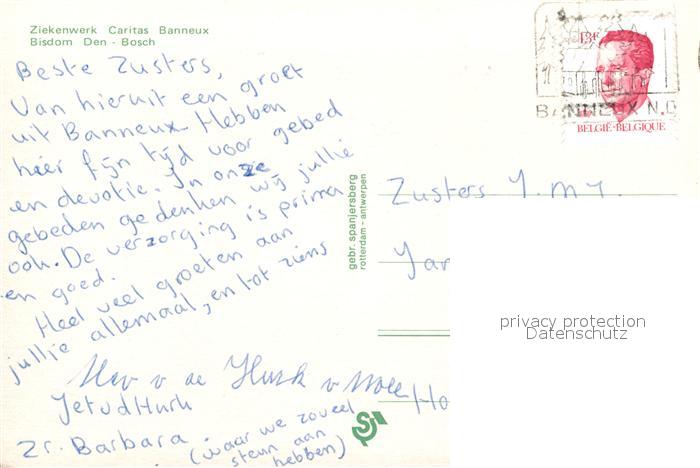 Ziekenwerk Caritas Banneux
Bisdom Den - Bosch
Beste Zusters,
Van hieruit een groet
uit Banneux. Hebben
hier fijn tijd voor gebed
en devotie. In onze
gebeden gedenken wij jullie
ook. De verzorging is prima
en goed.
Heel veel groeten aan
jullie allemaal, en tot ziens
v de Hurk v
Jet vd Hurk
Zr. Barbara (waar we zoveel
steun aan
hebben)
gebr. spanjersberg
rotterdam - antwerpen
13F
BANNEUX N.D
BELGIË-BELGIQUE
Zusters
privacy protection
Datenschutz